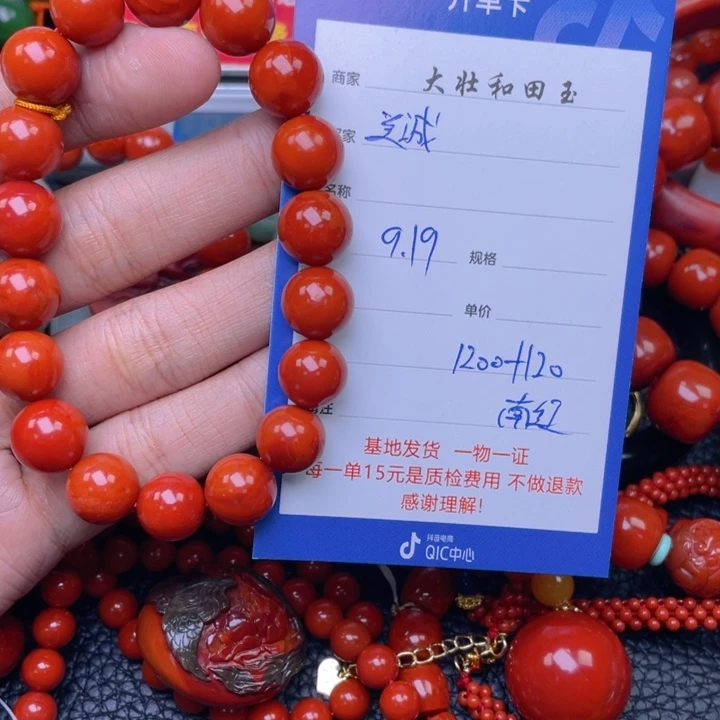 开单卡
商家 大壮和田玉
家 兰诚
名称
9.19 规格
单价
1200+120
注 南红
基地发货 一物一证
每一单15元是质检费用 不做退款
感谢理解!
抖音电商
QIC中心